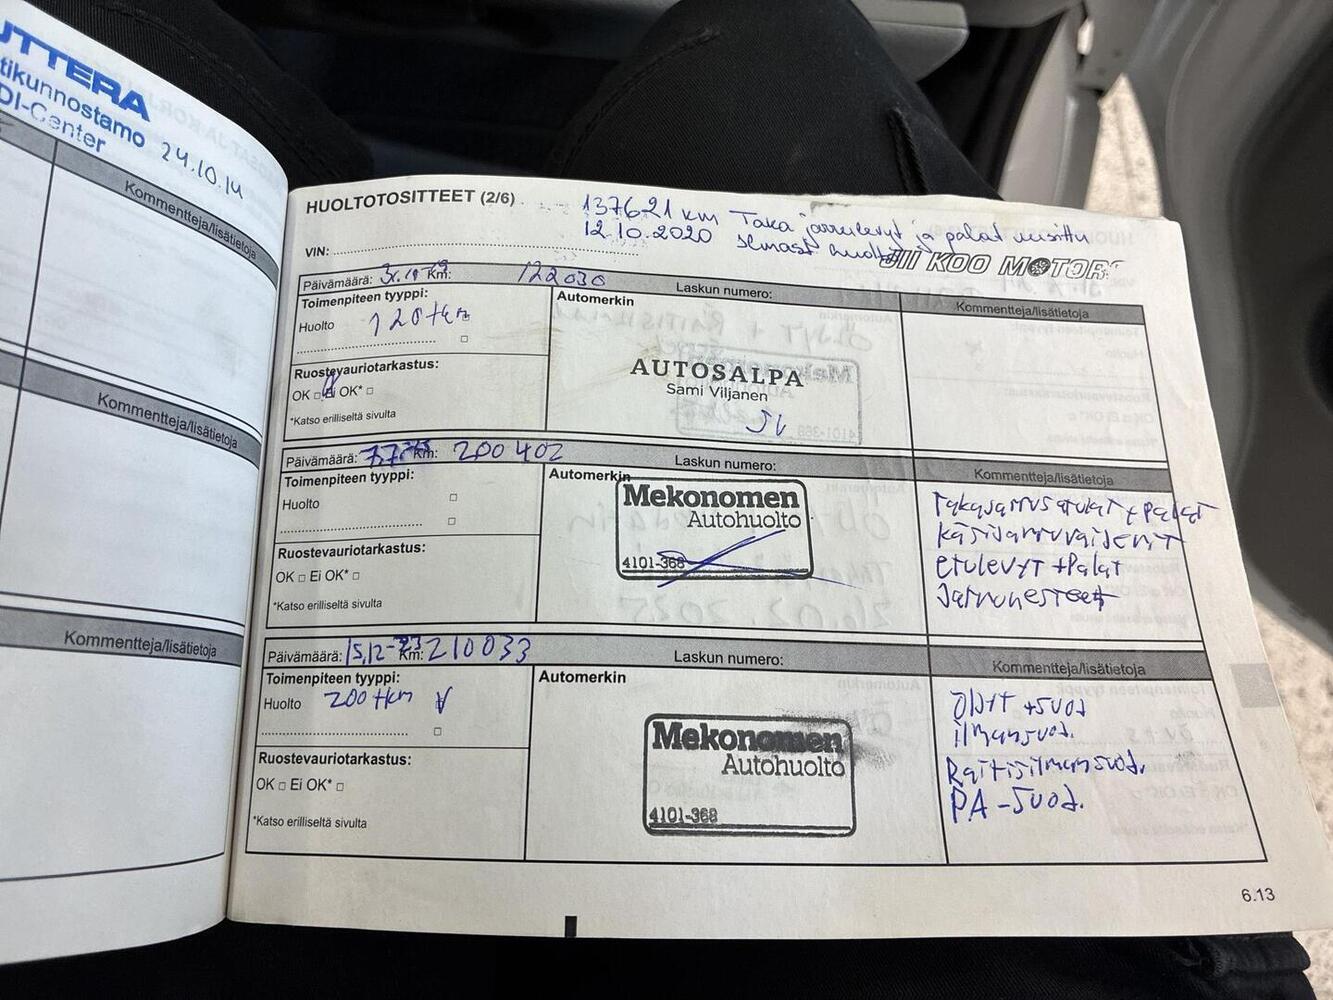 UTTERA
tikunnostamo
DI-Center
24.10.14
Kommentteja/lisätietoja
Kommentteja/lisätietoja
Kommentteja/lisätietoja
HUOLTOTOSITTEET (2/6)
137621 km Taka jarrulevyt ja palat uusittu
12.10.2020
VIN:
JII KOO MOTORS
Päivämäärä: Km: 122030 Laskun numero:
Kommentteja/lisätietoja
Toimenpiteen tyyppi:
Automerkin
Huolto 120 tkm
Ruostevauriotarkastus:
OK □ Ei OK* □
*Katso erilliseltä sivulta
AUTOSALPA
Sami Viljanen
SV
Päivämäärä: Km: 200402 Laskun numero:
Kommentteja/lisätietoja
Toimenpiteen tyyppi:
Automerkin
Huolto □
□
Ruostevauriotarkastus:
OK □ Ei OK* □
*Katso erilliseltä sivulta
Mekonomen
Autohuolto
4101-368
Takajarrusatulat + palat
käsijarruvaijerit
etulevyt + Palat
Jarruneste
Päivämäärä: 15,12-23 Km: 210033 Laskun numero:
Kommentteja/lisätietoja
Toimenpiteen tyyppi:
Automerkin
Huolto 200 tkm V
□
Ruostevauriotarkastus:
OK □ Ei OK* □
*Katso erilliseltä sivulta
Mekonomen
Autohuolto
4101-368
Öljyt + suod
ilmansuod.
Raitisilmansuod.
PA-Suod.
6.13